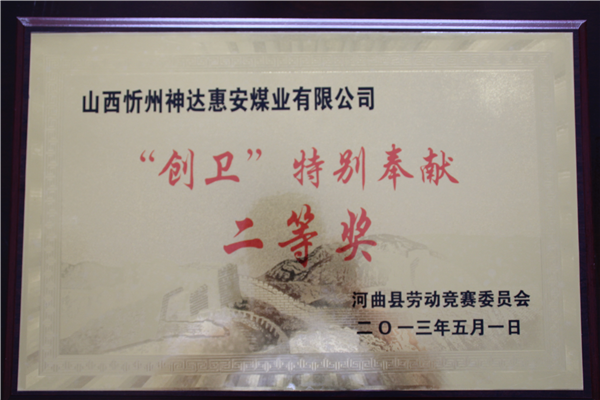 山西忻州神达惠安煤业有限公司
“创卫”特别奉献
二等奖
河曲县劳动竞赛委员会
二〇一三年五月一日